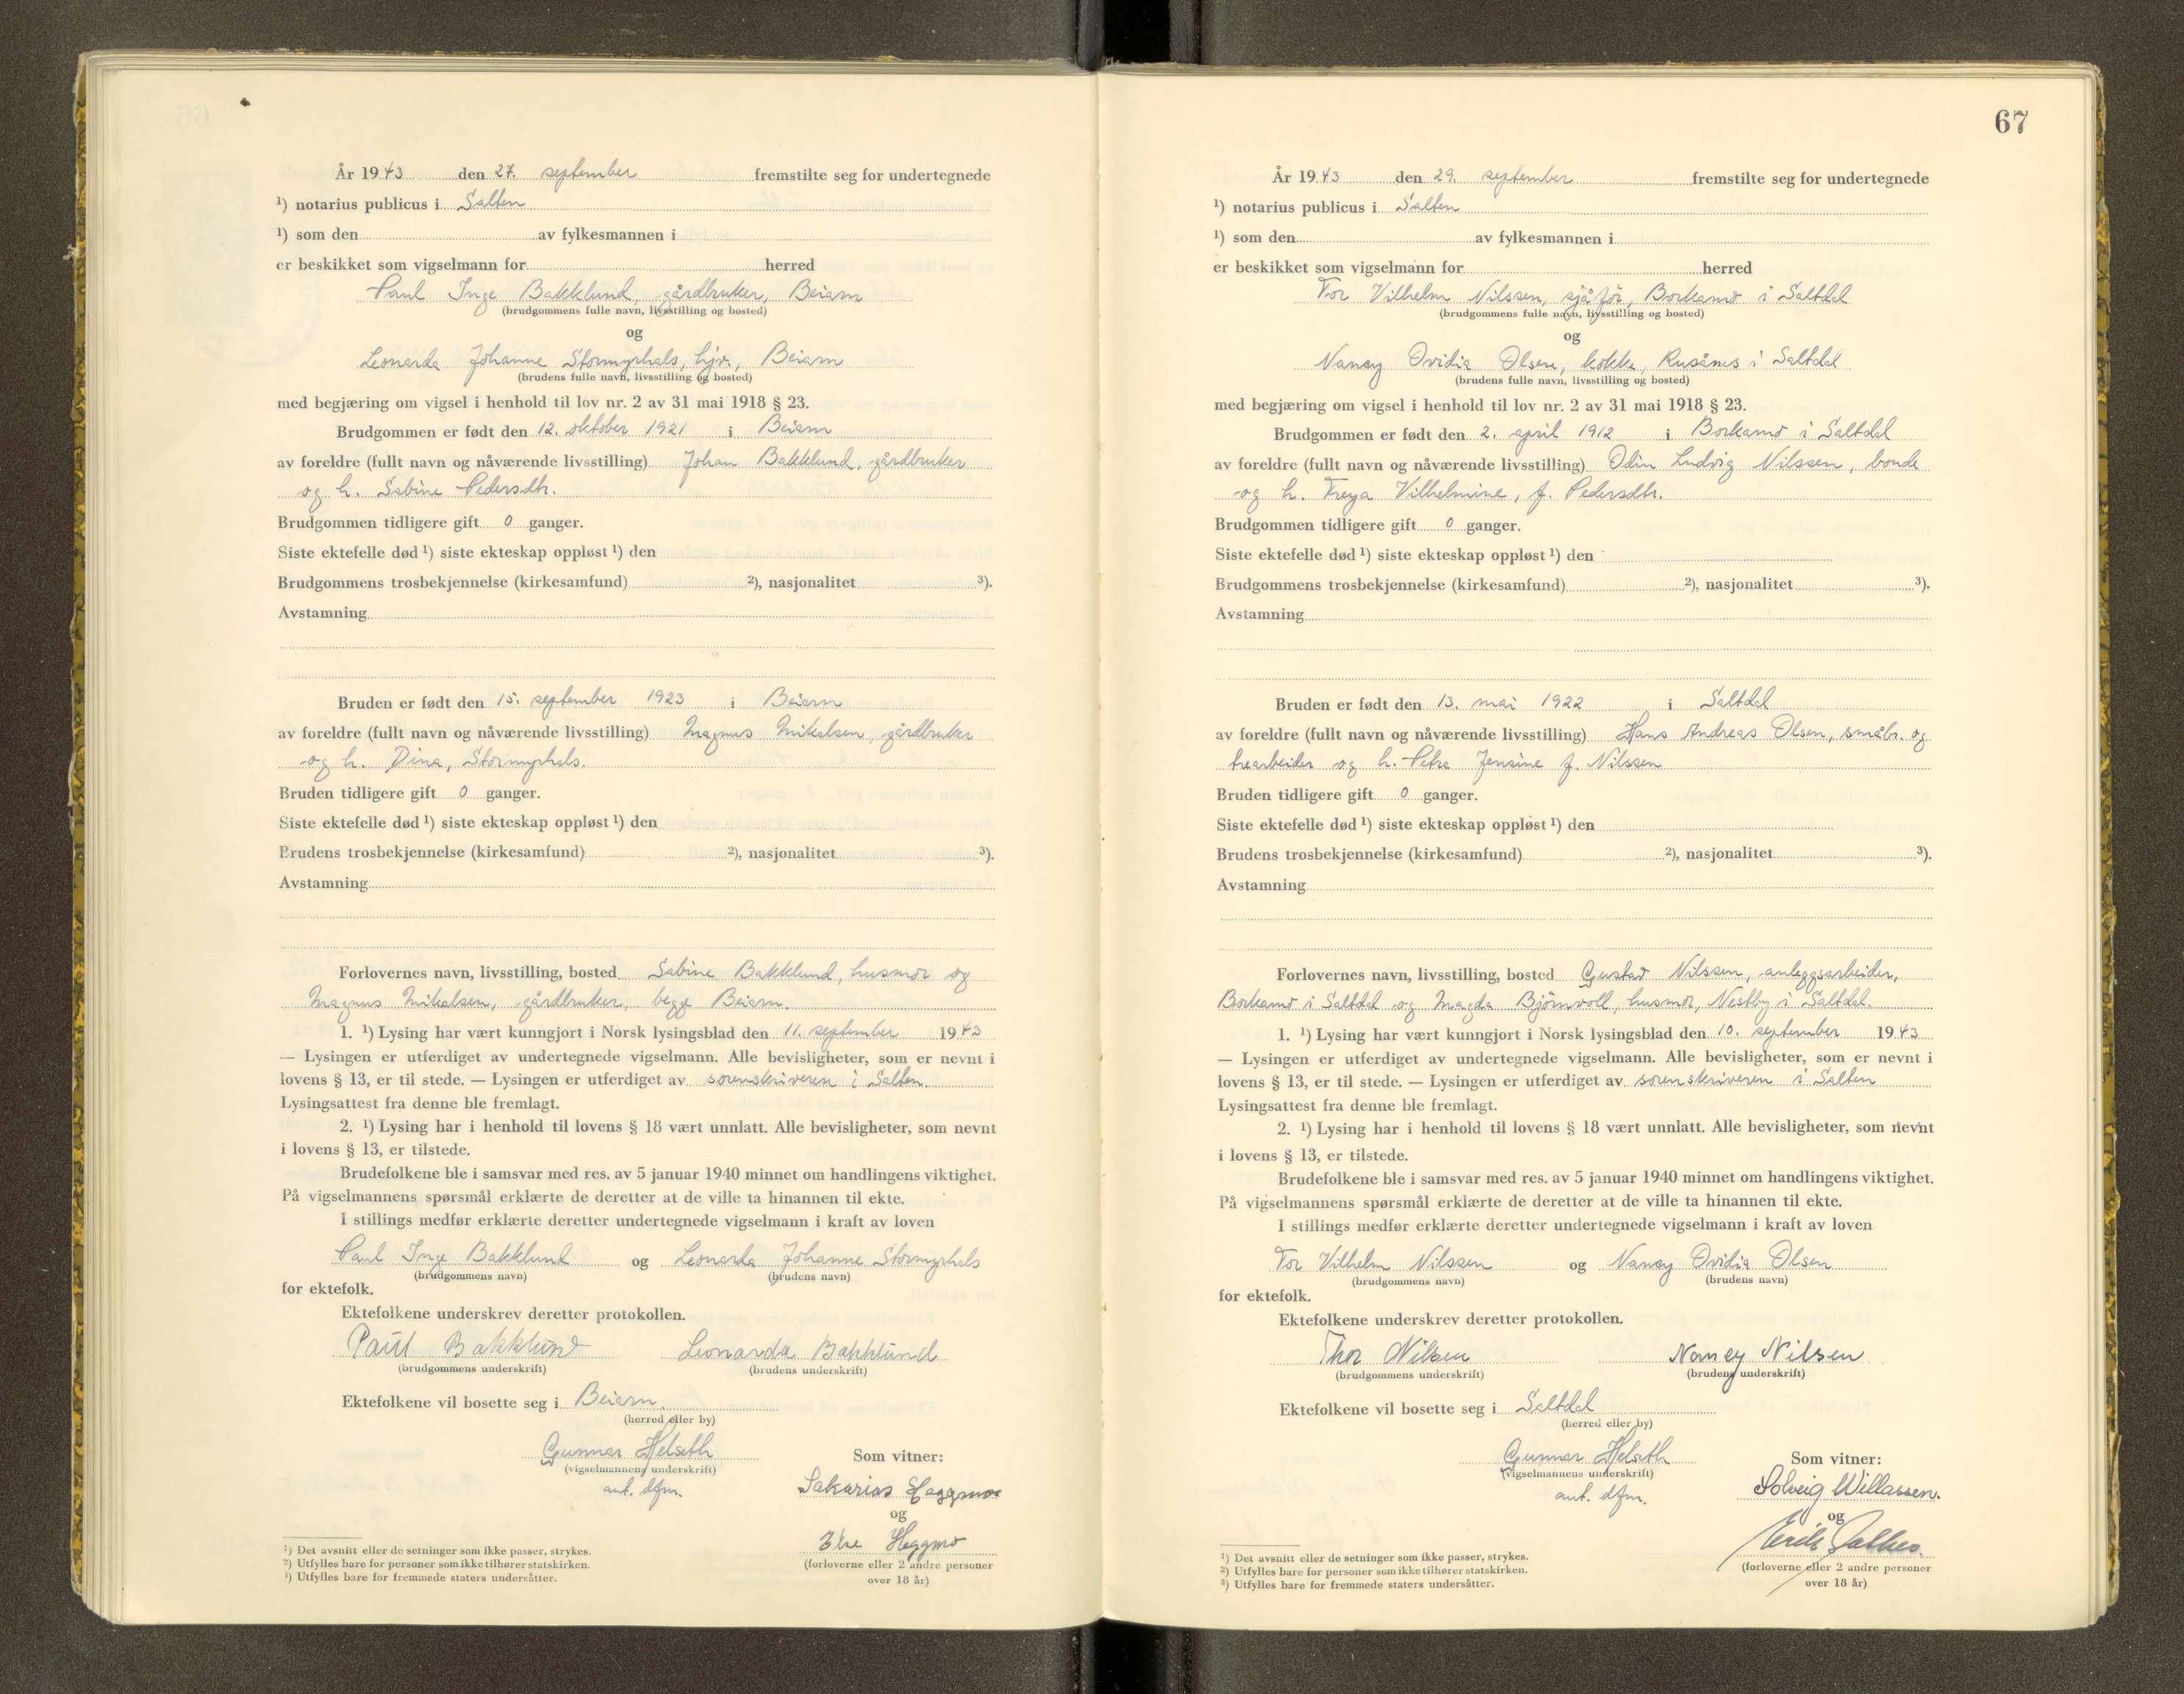 År 1943 den 27. september fremstilte seg for undertegnede
¹) notarius publicus i Salten
¹) som den av fylkesmannen i
er beskikket som vigselmann for herred
Paul Inge Bakklund, gårdbruker, Beiarn
(brudgommens fulle navn, livsstilling og bosted)
og
Leonarda Johanne Stormyrhals, hjv., Beiarn
(brudens fulle navn, livsstilling og bosted)
med begjæring om vigsel i henhold til lov nr. 2 av 31 mai 1918 § 23.
Brudgommen er født den 12. oktober 1921 i Beiarn
av foreldre (fullt navn og nåværende livsstilling) Johan Bakklund, gårdbruker
og h. Sabine Pedersdtr.
Brudgommen tidligere gift 0 ganger.
Siste ektefelle død ¹) siste ekteskap oppløst ¹) den
Brudgommens trosbekjennelse (kirkesamfund) ²), nasjonalitet ³).
Avstamning
Bruden er født den 15. september 1923 i Beiarn
av foreldre (fullt navn og nåværende livsstilling) Magnus Mikalsen, gårdbruker
og h. Dina, Stormyrhals.
Bruden tidligere gift 0 ganger.
Siste ektefelle død ¹) siste ekteskap oppløst ¹) den
Brudens trosbekjennelse (kirkesamfund) ²), nasjonalitet ³).
Avstamning
Forlovernes navn, livsstilling, bosted Sabine Bakklund, husmor og
Magnus Mikalsen, gårdbruker, begge Beiarn.
1. ¹) Lysing har vært kunngjort i Norsk lysingsblad den 11. september 1943
— Lysingen er utferdiget av undertegnede vigselmann. Alle bevisligheter, som er nevnt i
lovens § 13, er til stede. — Lysingen er utferdiget av sorenskriveren i Salten.
Lysingsattest fra denne ble fremlagt.
2. ¹) Lysing har i henhold til lovens § 18 vært unnlatt. Alle bevisligheter, som nevnt
i lovens § 13, er tilstede.
Brudefolkene ble i samsvar med res. av 5 januar 1940 minnet om handlingens viktighet.
På vigselmannens spørsmål erklærte de deretter at de ville ta hinannen til ekte.
I stillings medfør erklærte deretter undertegnede vigselmann i kraft av loven
Paul Inge Bakklund og Leonarda Johanne Stormyrhals
(brudgommens navn) (brudens navn)
for ektefolk.
Ektefolkene underskrev deretter protokollen.
Paul Bakklund Leonarda Bakklund
(brudgommens underskrift) (brudens underskrift)
Ektefolkene vil bosette seg i Beiarn.
(herred eller by)
Gunnar Helseth Som vitner:
(vigselmannens underskrift)
aut. dfm. Sakarias Heggmo
og
Heggmo
(forloverne eller 2 andre personer
over 18 år)
¹) Det avsnitt eller de setninger som ikke passer, strykes.
²) Utfylles bare for personer som ikke tilhører statskirken.
³) Utfylles bare for fremmede staters undersåtter.
67
År 1943 den 29. september fremstilte seg for undertegnede
¹) notarius publicus i Salten
¹) som den av fylkesmannen i
er beskikket som vigselmann for herred
Tor Vilhelm Nilssen, sjåfør, Borkamo i Saltdal
(brudgommens fulle navn, livsstilling og bosted)
og
Nancy Ovidia Olsen, kokke, Rusånes i Saltdal
(brudens fulle navn, livsstilling og bosted)
med begjæring om vigsel i henhold til lov nr. 2 av 31 mai 1918 § 23.
Brudgommen er født den 2. april 1912 i Borkamo i Saltdal
av foreldre (fullt navn og nåværende livsstilling) Odin Ludvig Nilssen, bonde
og h. Freya Vilhelmine, f. Pedersdtr.
Brudgommen tidligere gift 0 ganger.
Siste ektefelle død ¹) siste ekteskap oppløst ¹) den
Brudgommens trosbekjennelse (kirkesamfund) ²), nasjonalitet ³).
Avstamning
Bruden er født den 13. mai 1922 i Saltdal
av foreldre (fullt navn og nåværende livsstilling) Hans Andreas Olsen, småbr. og
trearbeider og h. Petra Jensine f. Nilssen
Bruden tidligere gift 0 ganger.
Siste ektefelle død ¹) siste ekteskap oppløst ¹) den
Brudens trosbekjennelse (kirkesamfund) ²), nasjonalitet ³).
Avstamning
Forlovernes navn, livsstilling, bosted Gustav Nilssen, anleggsarbeider,
Borkamo i Saltdal og Magda Bjørnvoll, husmor, Nestby i Saltdal.
1. ¹) Lysing har vært kunngjort i Norsk lysingsblad den 10. september 1943
— Lysingen er utferdiget av undertegnede vigselmann. Alle bevisligheter, som er nevnt i
lovens § 13, er til stede. — Lysingen er utferdiget av sorenskriveren i Salten
Lysingsattest fra denne ble fremlagt.
2. ¹) Lysing har i henhold til lovens § 18 vært unnlatt. Alle bevisligheter, som nevnt
i lovens § 13, er tilstede.
Brudefolkene ble i samsvar med res. av 5 januar 1940 minnet om handlingens viktighet.
På vigselmannens spørsmål erklærte de deretter at de ville ta hinannen til ekte.
I stillings medfør erklærte deretter undertegnede vigselmann i kraft av loven
Tor Vilhelm Nilssen og Nancy Ovidia Olsen
(brudgommens navn) (brudens navn)
for ektefolk.
Ektefolkene underskrev deretter protokollen.
Thor Nilsen Nancy Nilsen
(brudgommens underskrift) (brudens underskrift)
Ektefolkene vil bosette seg i Saltdal
(herred eller by)
Gunnar Helseth Som vitner:
(vigselmannens underskrift)
aut. dfm. Solveig Willassen.
og
Erik
(forloverne eller 2 andre personer
over 18 år)
¹) Det avsnitt eller de setninger som ikke passer, strykes.
²) Utfylles bare for personer som ikke tilhører statskirken.
³) Utfylles bare for fremmede staters undersåtter.